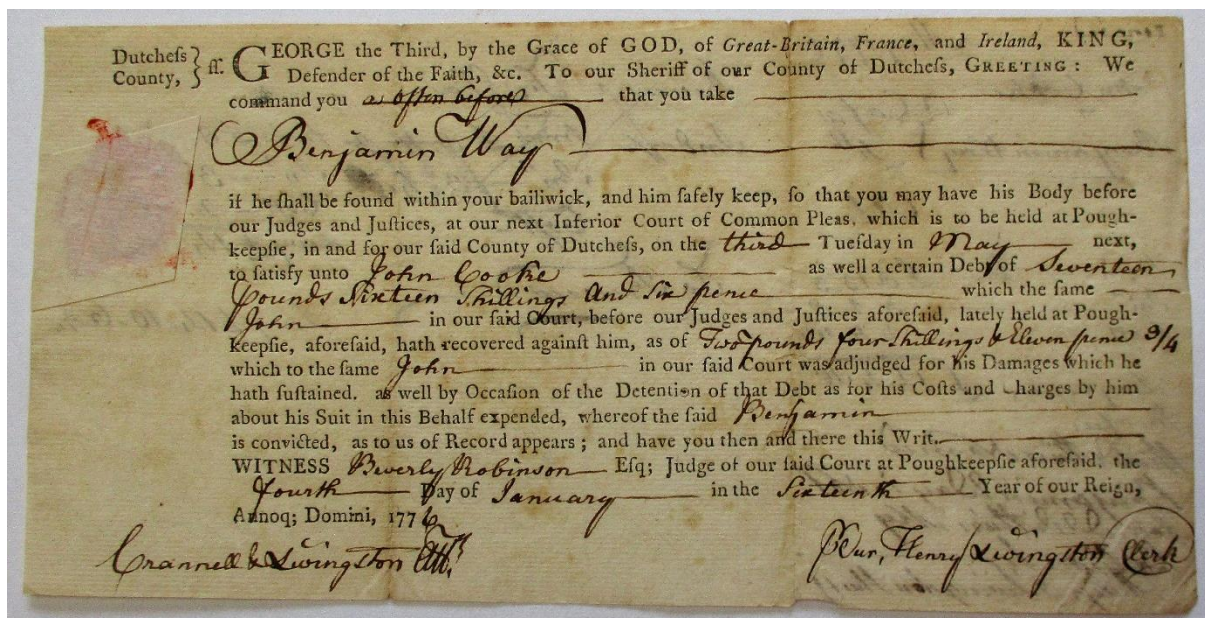 Dutcheſs County, } ſſ. GEORGE the Third, by the Grace of GOD, of Great-Britain, France, and Ireland, KING,
Defender of the Faith, &c. To our Sheriff of our County of Dutcheſs, GREETING: We
command you as often before that you take
Benjamin Way
if he ſhall be found within your bailiwick, and him ſafely keep, ſo that you may have his Body before
our Judges and Juſtices, at our next Inferior Court of Common Pleas, which is to be held at Pough-
keepſie, in and for our ſaid County of Dutcheſs, on the third Tueſday in May next,
to ſatisfy unto John Cooke as well a certain Debt of Seventeen
pounds Sixteen Shillings and Six pence which the ſame
John in our ſaid Court, before our Judges and Juſtices aforeſaid, lately held at Pough-
keepſie, aforeſaid, hath recovered againſt him, as of Two pounds four Shillings & Eleven pence 3/4
which to the ſame John in our ſaid Court was adjudged for his Damages which he
hath ſuſtained. as well by Occaſion of the Detention of that Debt as for his Coſts and Charges by him
about his Suit in this Behalf expended, whereof the ſaid Benjamin
is convicted, as to us of Record appears; and have you then and there this Writ.
WITNESS Beverly Robinson Eſq; Judge of our ſaid Court at Poughkeepſie aforeſaid. the
Fourth Day of January in the Sixteenth Year of our Reign,
Annoq; Domini, 1776
Crannell & Livingston Att.ys
Henry Livingston Clerk